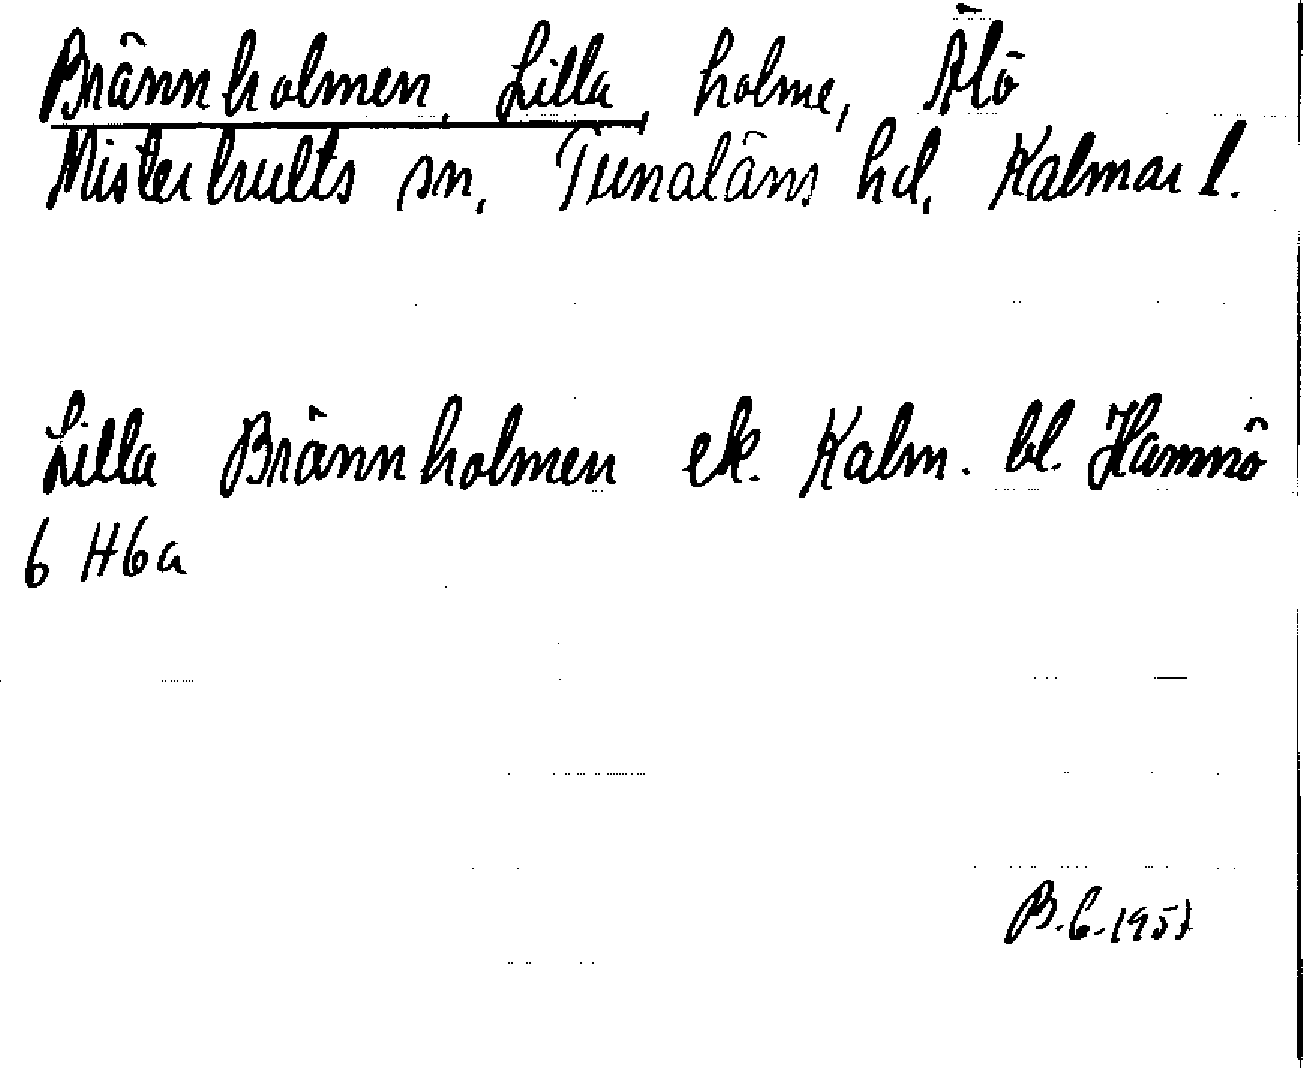 Brännholmen, Lilla, holme, Älö
Misterhults sn, Tunaläns hd, Kalmar l.
Lilla Brännholmen ek. Kalm. bl. Hamnö
6 H6a
B.G. 1957